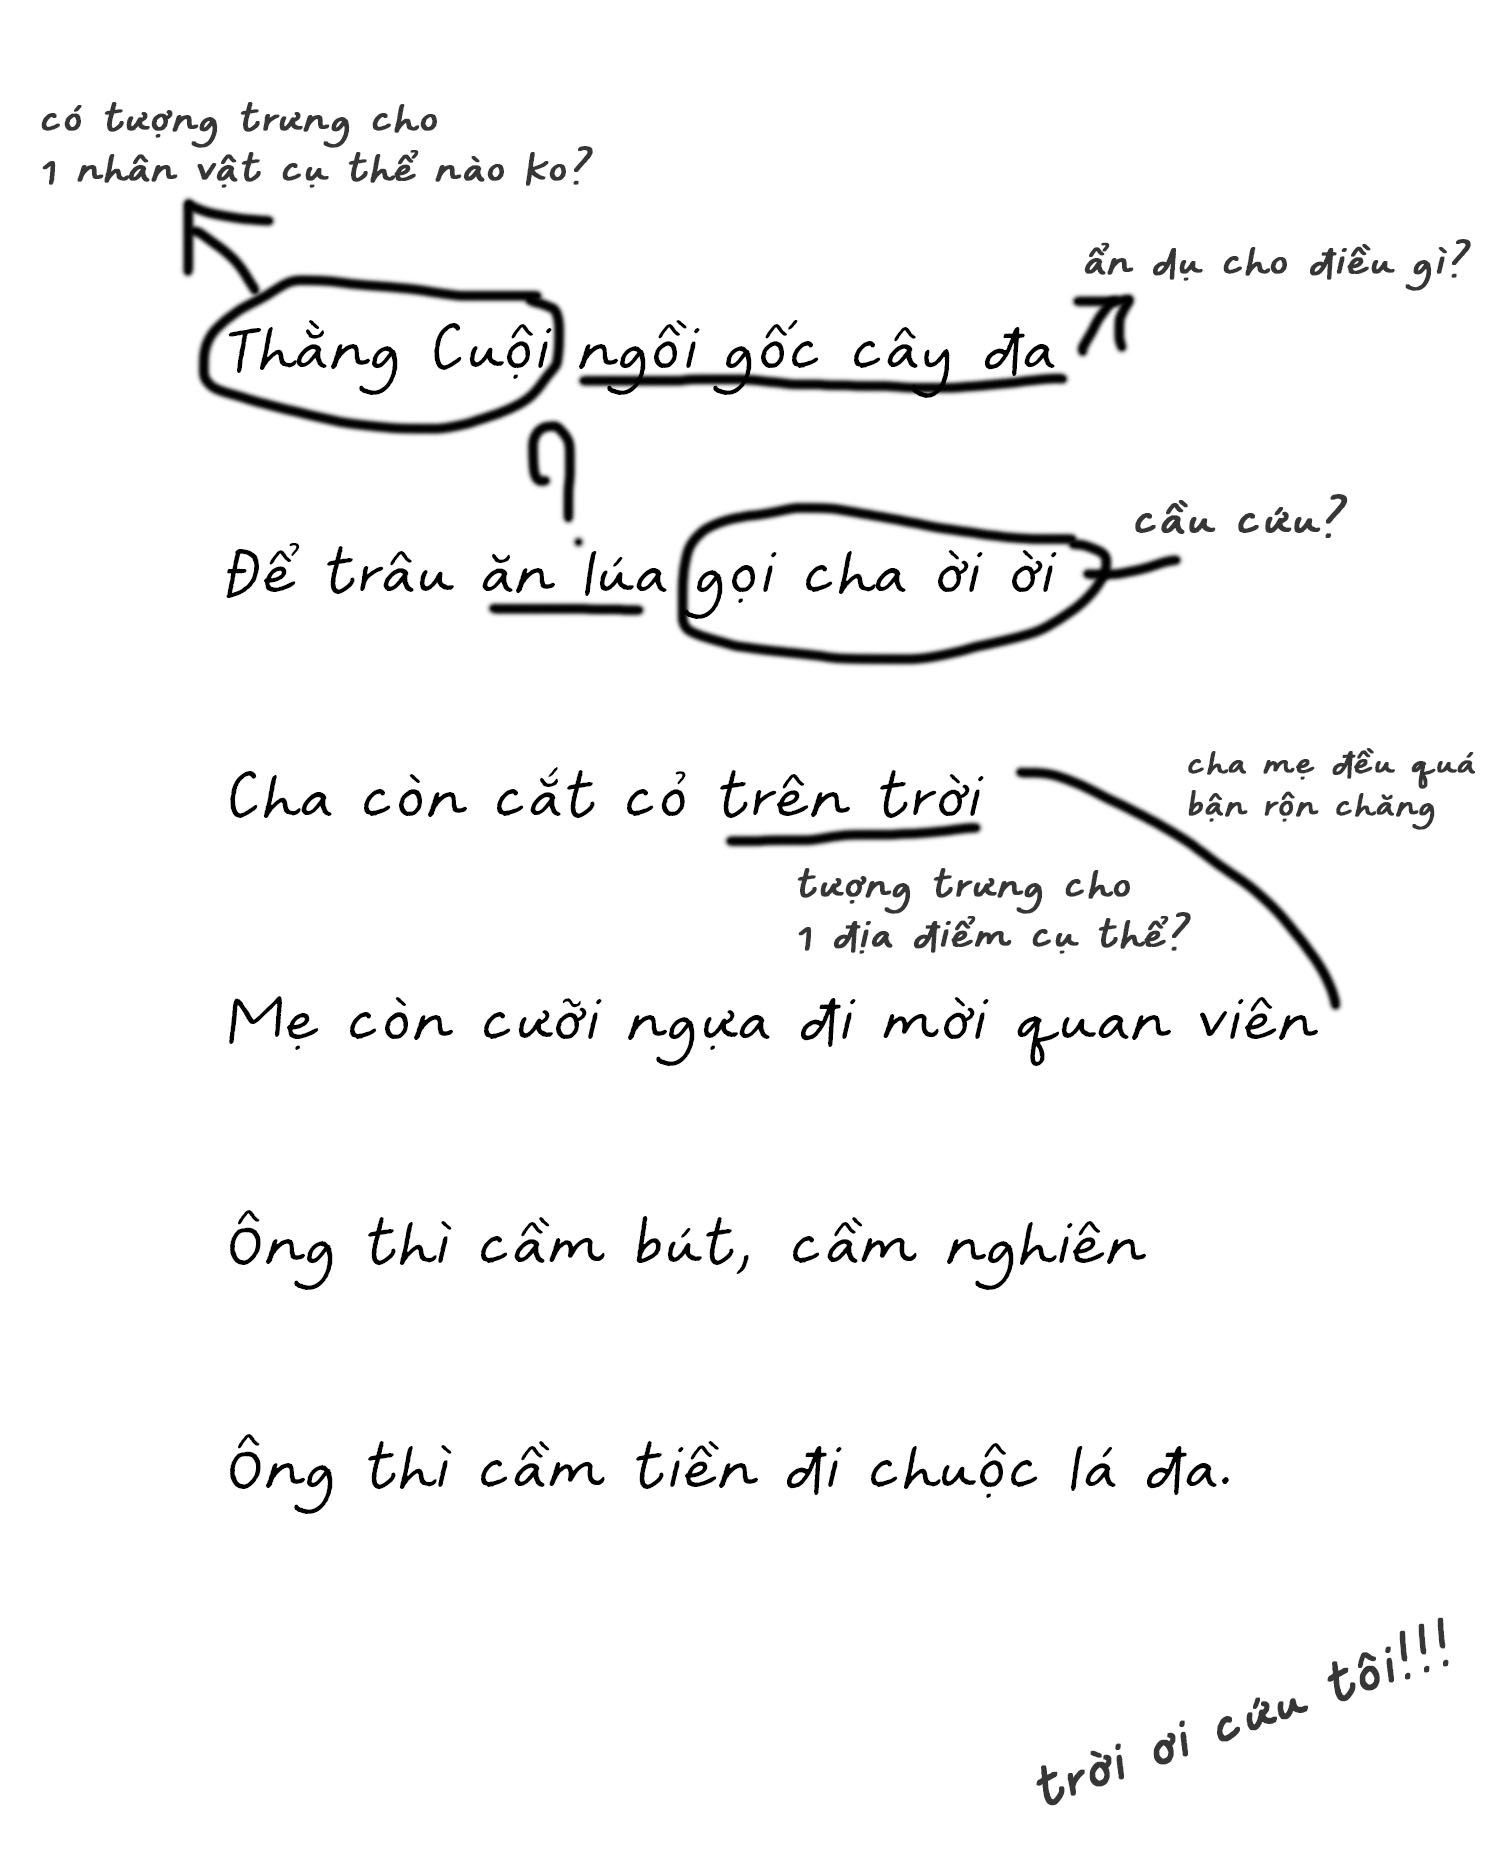 có tượng trưng cho
1 nhân vật cụ thể nào ko?
ẩn dụ cho điều gì?
Thằng Cuội ngồi gốc cây đa
?
cầu cứu?
Để trâu ăn lúa gọi cha ời ời
cha mẹ đều quá
bận rộn chăng
Cha còn cắt cỏ trên trời
tượng trưng cho
1 địa điểm cụ thể?
Mẹ còn cưỡi ngựa đi mời quan viên
Ông thì cầm bút, cầm nghiên
Ông thì cầm tiền đi chuộc lá đa.
trời ơi cứu tôi!!!